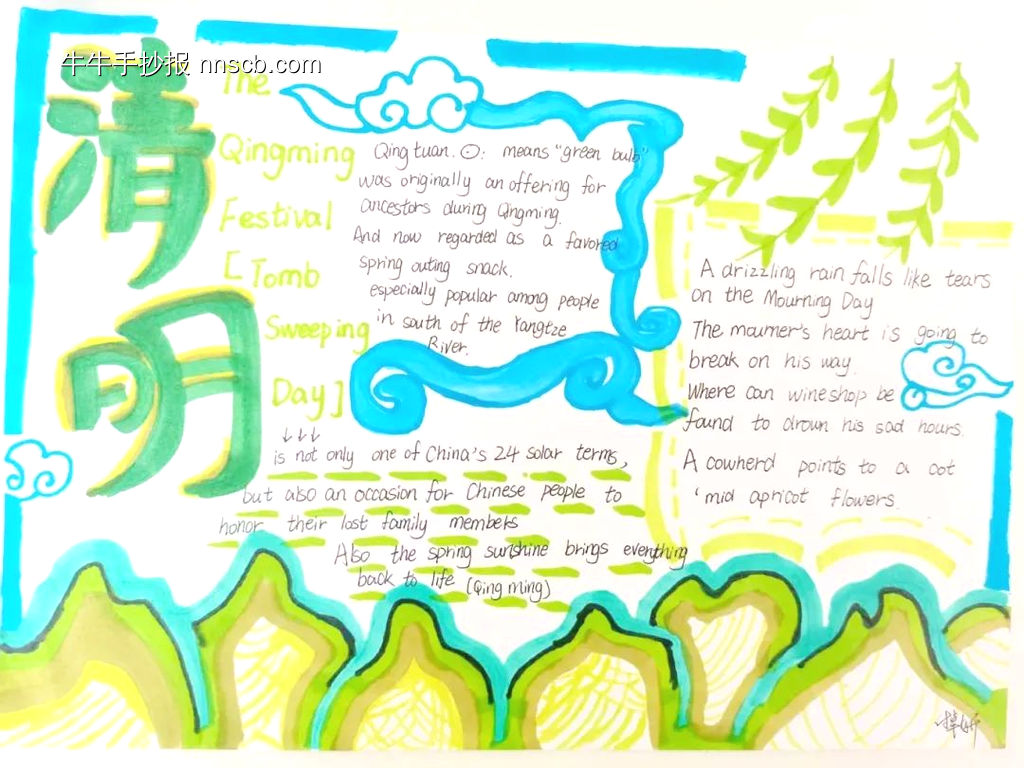 牛牛手抄报 nnscb.com
清
明
The
Qingming
Festival
[Tomb
Sweeping
Day]
Qingtuan. ⊙: means "green bulb"
was originally an offering for
ancestors during Qingming.
And now regarded as a favored
spring outing snack.
especially popular among people
in south of the Yangtze
River.
↓↓↓
is not only one of China's 24 solar terms,
but also an occasion for Chinese people to
honor their lost family members
Also the spring sunshine brings everything
back to life (Qing ming)
A drizzling rain falls like tears
on the Mourning Day
The mourner's heart is going to
break on his way.
Where can wineshop be
found to drown his sad hours.
A cowherd points to a cot
'mid apricot flowers.